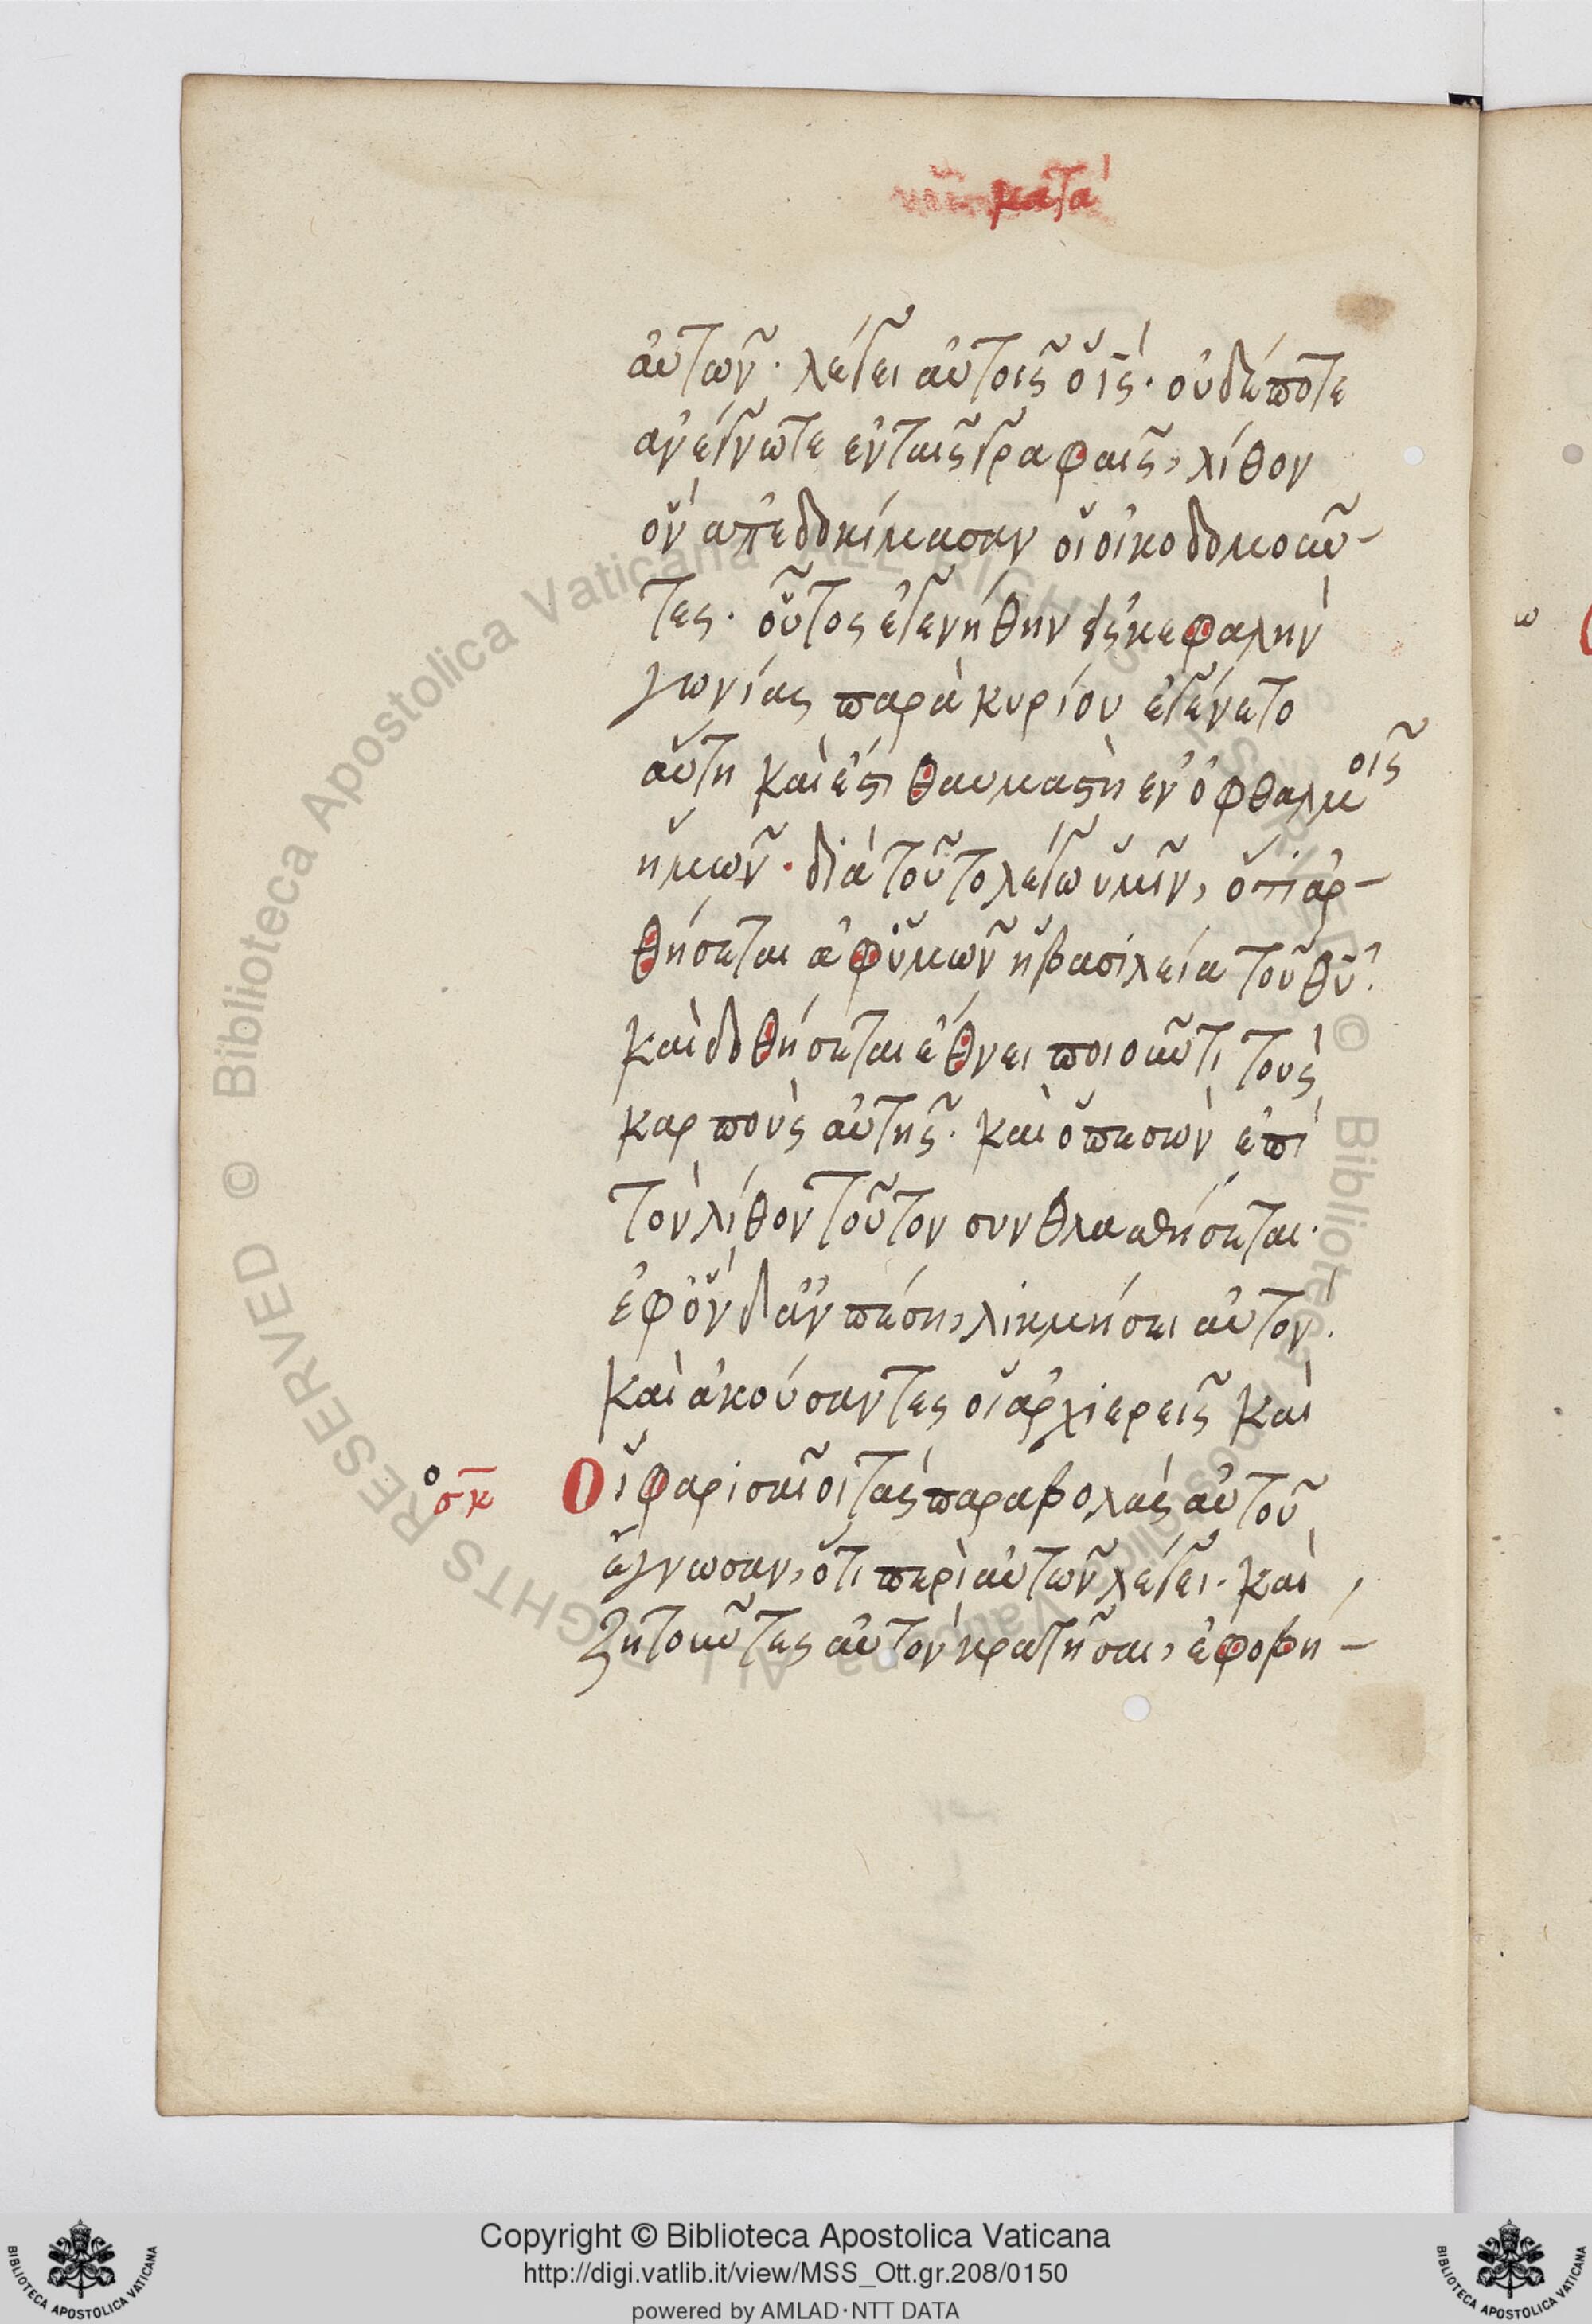 κατὰ
αὐτῶν· λέγει αὐτοῖς ὁ ἰς̅· οὐδέποτε
ἀνέγνωτε ἐν ταῖς γραφαῖς, λίθον
ὃν ἀπεδοκίμασαν οἱ οἰκοδομοῦν-
τες· οὗτος ἐγενήθην εἰς κεφαλὴν
γωνίας παρὰ κυρίου ἐγένετο
αὕτη καὶ ἔστι θαυμαστὴ ἐν ὀφθαλμοῖς
ἡμῶν· διὰ τοῦτο λέγω ὑμῖν, ὅτι ἀρ-
θήσεται ἀφ ὑμῶν ἡ βασιλεία τοῦ θυ̅·
καὶ δοθήσεται ἔθνει ποιοῦντι τοὺς
καρποὺς αὐτῆς· καὶ ὁ πεσὼν ἐπὶ
τὸν λίθον τοῦτον συνθλασθήσεται·
ἐφ ὃν δ ἂν πέσῃ, λικμήσει αὐτόν·
καὶ ἀκούσαντες οἱ ἀρχιερεῖς καὶ
σκ̅
Οἱ φαρισαῖοι τὰς παραβολὰς αὐτοῦ
ἔγνωσαν, ὅτι περὶ αὐτῶν λέγει· καὶ
ζητοῦντες αὐτὸν κρατῆσαι, ἐφοβή-
Copyright © Biblioteca Apostolica Vaticana
http://digi.vatlib.it/view/MSS_Ott.gr.208/0150
powered by AMLAD·NTT DATA